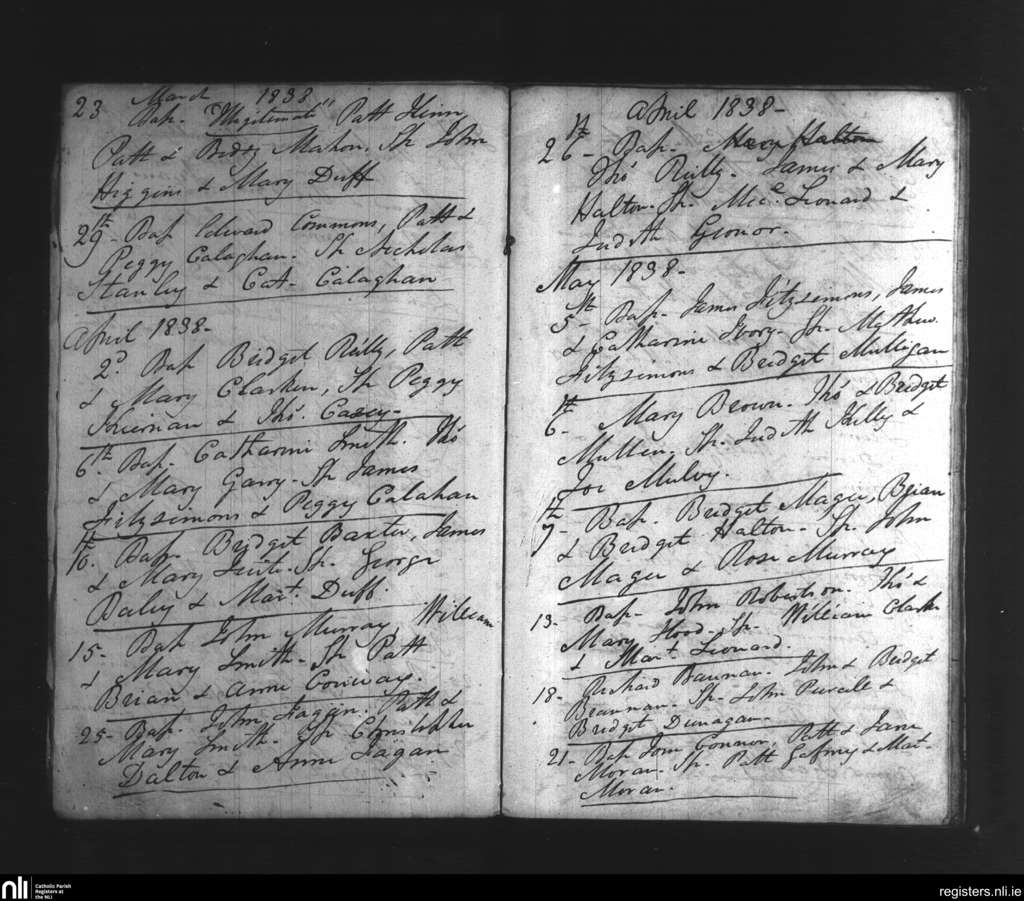 March 1838
23 Bap. "Illegitimate" Patt
Patt & Bridgt Mahon. Sp. John
Higgins & Mary Duff
29th - Bap Edward Commons, Patt &
Peggy Calaghan. Sp Nicholas
Stanley & Cat. Calaghan
April 1838-
2d Bap Bridget Reilly, Patt
& Mary Clarken, Sp Peggy
Kiernan & Thos. Casey-
6th Bap. Catharine Smith. Thos
& Mary Garry - Sp James
Fitzsimons & Peggy Calahan
16th Bap- Bridget Baxter, James
& Mary Sp. George
Daley & Mart. Duff.
15- Bap John Murray William
& Mary Smith- Sp Patt
Brian & Anne Conway.
25- Bap. John Fagan. Patt &
Mary Smith. Sp Christopher
Dalton & Anne Fagan
April 1838-
26th - Bap- Mary Halton
Thos Reilly- James & Mary
Halton. Sp. Mic. Leonard &
Judith Gronor.
May 1838-
5th - Bap- James Fitzsimons, James
& Catharine Ivory- Sp- Mathew
Fitzsimons & Bridget Mulligan
6th - Mary Brown. Thos & Bridget
Mullen, Sp. Judith Skelly &
Joe Mulvy.
7th - Bap. Bridget Magee, Brian
& Bridget Halton- Sp. John
Magee & Rose Murray
13- Bap- John Robertson. Thos &
Mary Hood- Sp. William Clarke
& Mart. Leonard.
18- Richard Brannan. John & Bridget
Brannan. Sp- John Purcele &
Bridget Dunagan.
21- Bap Jon Connor, Patt & Jane
Moran. Sp. Patt Geffrey & Mart-
Moran.
nli
Catholic Parish
Registers at
the NLI
registers.nli.ie